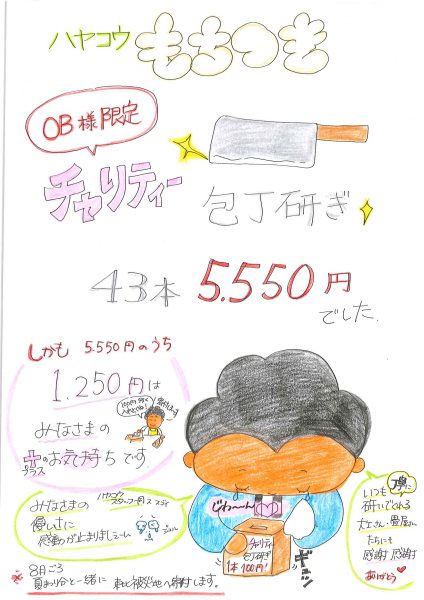 ハヤコウ もちつき
OB様限定
チャリティー
包丁研ぎ
43本 5.550円
でした.
しかも 5.550円のうち
1.250円は
みなさまの
プラス
+のお気持ちです
じわ〜〜ん
チャリティ
包丁研ぎ
1本100円!
ギュッ
みなさまの
優しさに
感動が止まりませーん
ハヤコウ
スタッフ一同
いつも
研いでくれる
大工さん・畳屋さん
たちにも
感謝 感謝
ありがとう
※ 8月ごろ
夏まつり分と一緒に 東北被災地へ寄付します。